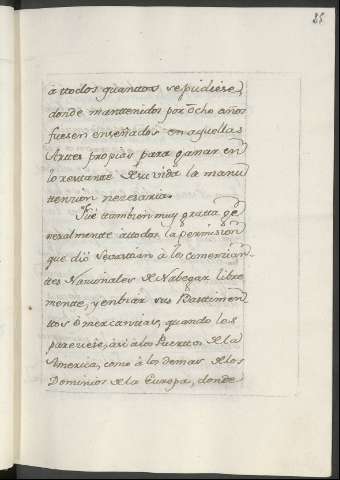 25
á ttodos quanttos se pudiese,
donde manttenidos por ócho años
fuesen enseñados en aquellas
Arttes propias para ganar en
lo restante de su vida la manu
ttencion nezesaria.
Fué ttambien muy gratta ge
neralmentte áttodos la permision
que dió Sebasttian á los Comerzian-
ttes Nazionales de Nabegar libre
mentte, y enbiar sus Basttimen
ttos ó mercanzias, quando les
pareziese, asi á los Puerttos de la
America, como á los demas de los
Dominios de la Europa, donde